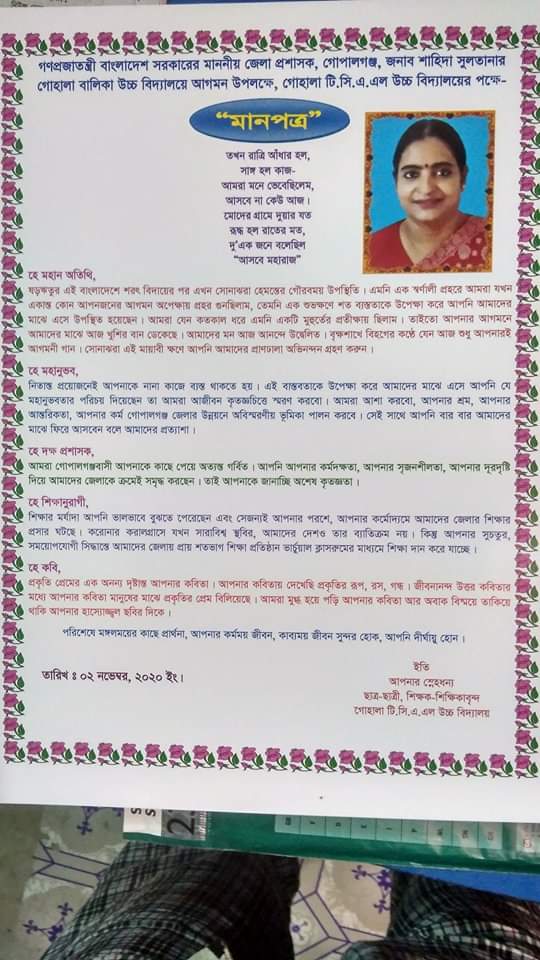 গণপ্রজাতন্ত্রী বাংলাদেশ সরকারের মাননীয় জেলা প্রশাসক, গোপালগঞ্জ, জনাব শাহিদা সুলতানার
গোহালা বালিকা উচ্চ বিদ্যালয়ে আগমন উপলক্ষে, গোহালা টি.সি.এ.এল উচ্চ বিদ্যালয়ের পক্ষে-
“মানপত্র”
তখন রাত্রি আঁধার হল,
সাঙ্গ হল কাজ-
আমরা মনে ভেবেছিলেম,
আসবে না কেউ আজ।
মোদের গ্রামে দুয়ার যত
রূদ্ধ হল রাতের মত,
দু'এক জনে বলেছিল
“আসবে মহারাজ”
হে মহান অতিথি,
ষড়ঋতুর এই বাংলাদেশে শরৎ বিদায়ের পর এখন সোনাঝরা হেমন্তের গৌরবময় উপস্থিতি। এমনি এক স্বর্ণালী প্রহরে আমরা যখন
একান্ত কোন আপনজনের আগমন অপেক্ষায় প্রহর গুনছিলাম, তেমনি এক শুভক্ষণে শত ব্যস্ততাকে উপেক্ষা করে আপনি আমাদের
মাঝে এসে উপস্থিত হয়েছেন। আমরা যেন কতকাল ধরে এমনি একটি মুহুর্তের প্রতীক্ষায় ছিলাম। তাইতো আপনার আগমনে
আমাদের মাঝে আজ খুশির বান ডেকেছে। আমাদের মন আজ আনন্দে উদ্বেলিত। বৃক্ষশাখে বিহগের কণ্ঠে যেন আজ শুধু আপনারই
আগমনী গান। সোনাঝরা এই মায়াবী ক্ষণে আপনি আমাদের প্রাণঢালা অভিনন্দন গ্রহণ করুন।
হে মহানুভব,
নিতান্ত প্রয়োজনেই আপনাকে নানা কাজে ব্যস্ত থাকতে হয়। এই ব্যস্ততাকে উপেক্ষা করে আমাদের মাঝে এসে আপনি যে
মহানুভবতার পরিচয় দিয়েছেন তা আমরা আজীবন কৃতজ্ঞচিত্তে স্মরণ করবো। আমরা আশা করবো, আপনার শ্রম, আপনার
আন্তরিকতা, আপনার কর্ম গোপালগঞ্জ জেলার উন্নয়নে অবিস্মরণীয় ভূমিকা পালন করবে। সেই সাথে আপনি বার বার আমাদের
মাঝে ফিরে আসবেন বলে আমাদের প্রত্যাশা।
হে দক্ষ প্রশাসক,
আমরা গোপালগঞ্জবাসী আপনাকে কাছে পেয়ে অত্যন্ত গর্বিত। আপনি আপনার কর্মদক্ষতা, আপনার সৃজনশীলতা, আপনার দূরদৃষ্টি
দিয়ে আমাদের জেলাকে ক্রমেই সমৃদ্ধ করছেন। তাই আপনাকে জানাচ্ছি অশেষ কৃতজ্ঞতা।
হে শিক্ষানুরাগী,
শিক্ষার মর্যাদা আপনি ভালভাবে বুঝতে পেরেছেন এবং সেজন্যই আপনার পরশে, আপনার কর্মোদ্যমে আমাদের জেলার শিক্ষার
প্রসার ঘটছে। করোনার করালগ্রাসে যখন সারাবিশ্ব স্থবির, আমাদের দেশও তার ব্যাতিক্রম নয়। কিন্তু আপনার সুচতুর,
সময়োপযোগী সিদ্ধান্তে আমাদের জেলায় প্রায় শতভাগ শিক্ষা প্রতিষ্ঠান ভার্চুয়াল ক্লাসরুমের মাধ্যমে শিক্ষা দান করে যাচ্ছে।
হে কবি,
প্রকৃতি প্রেমের এক অনন্য দৃষ্টান্ত আপনার কবিতা। আপনার কবিতায় দেখেছি প্রকৃতির রূপ, রস, গন্ধ। জীবনানন্দ উত্তর কবিতার
মধ্যে আপনার কবিতা মানুষের মাঝে প্রকৃতির প্রেম বিলিয়েছে। আমরা মুগ্ধ হয়ে পড়ি আপনার কবিতা আর অবাক বিস্ময়ে তাকিয়ে
থাকি আপনার হাস্যোজ্জ্বল ছবির দিকে।
পরিশেষে মঙ্গলময়ের কাছে প্রার্থনা, আপনার কর্মময় জীবন, কাব্যময় জীবন সুন্দর হোক, আপনি দীর্ঘায়ু হোন।
তারিখ ঃ ০২ নভেম্বর, ২০২০ ইং।
ইতি
আপনার স্নেহধন্য
ছাত্র-ছাত্রী, শিক্ষক-শিক্ষিকাবৃন্দ
গোহালা টি.সি.এ.এল উচ্চ বিদ্যালয়